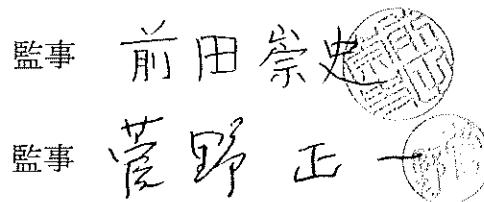 監事 前田崇史
監事 菅野正一